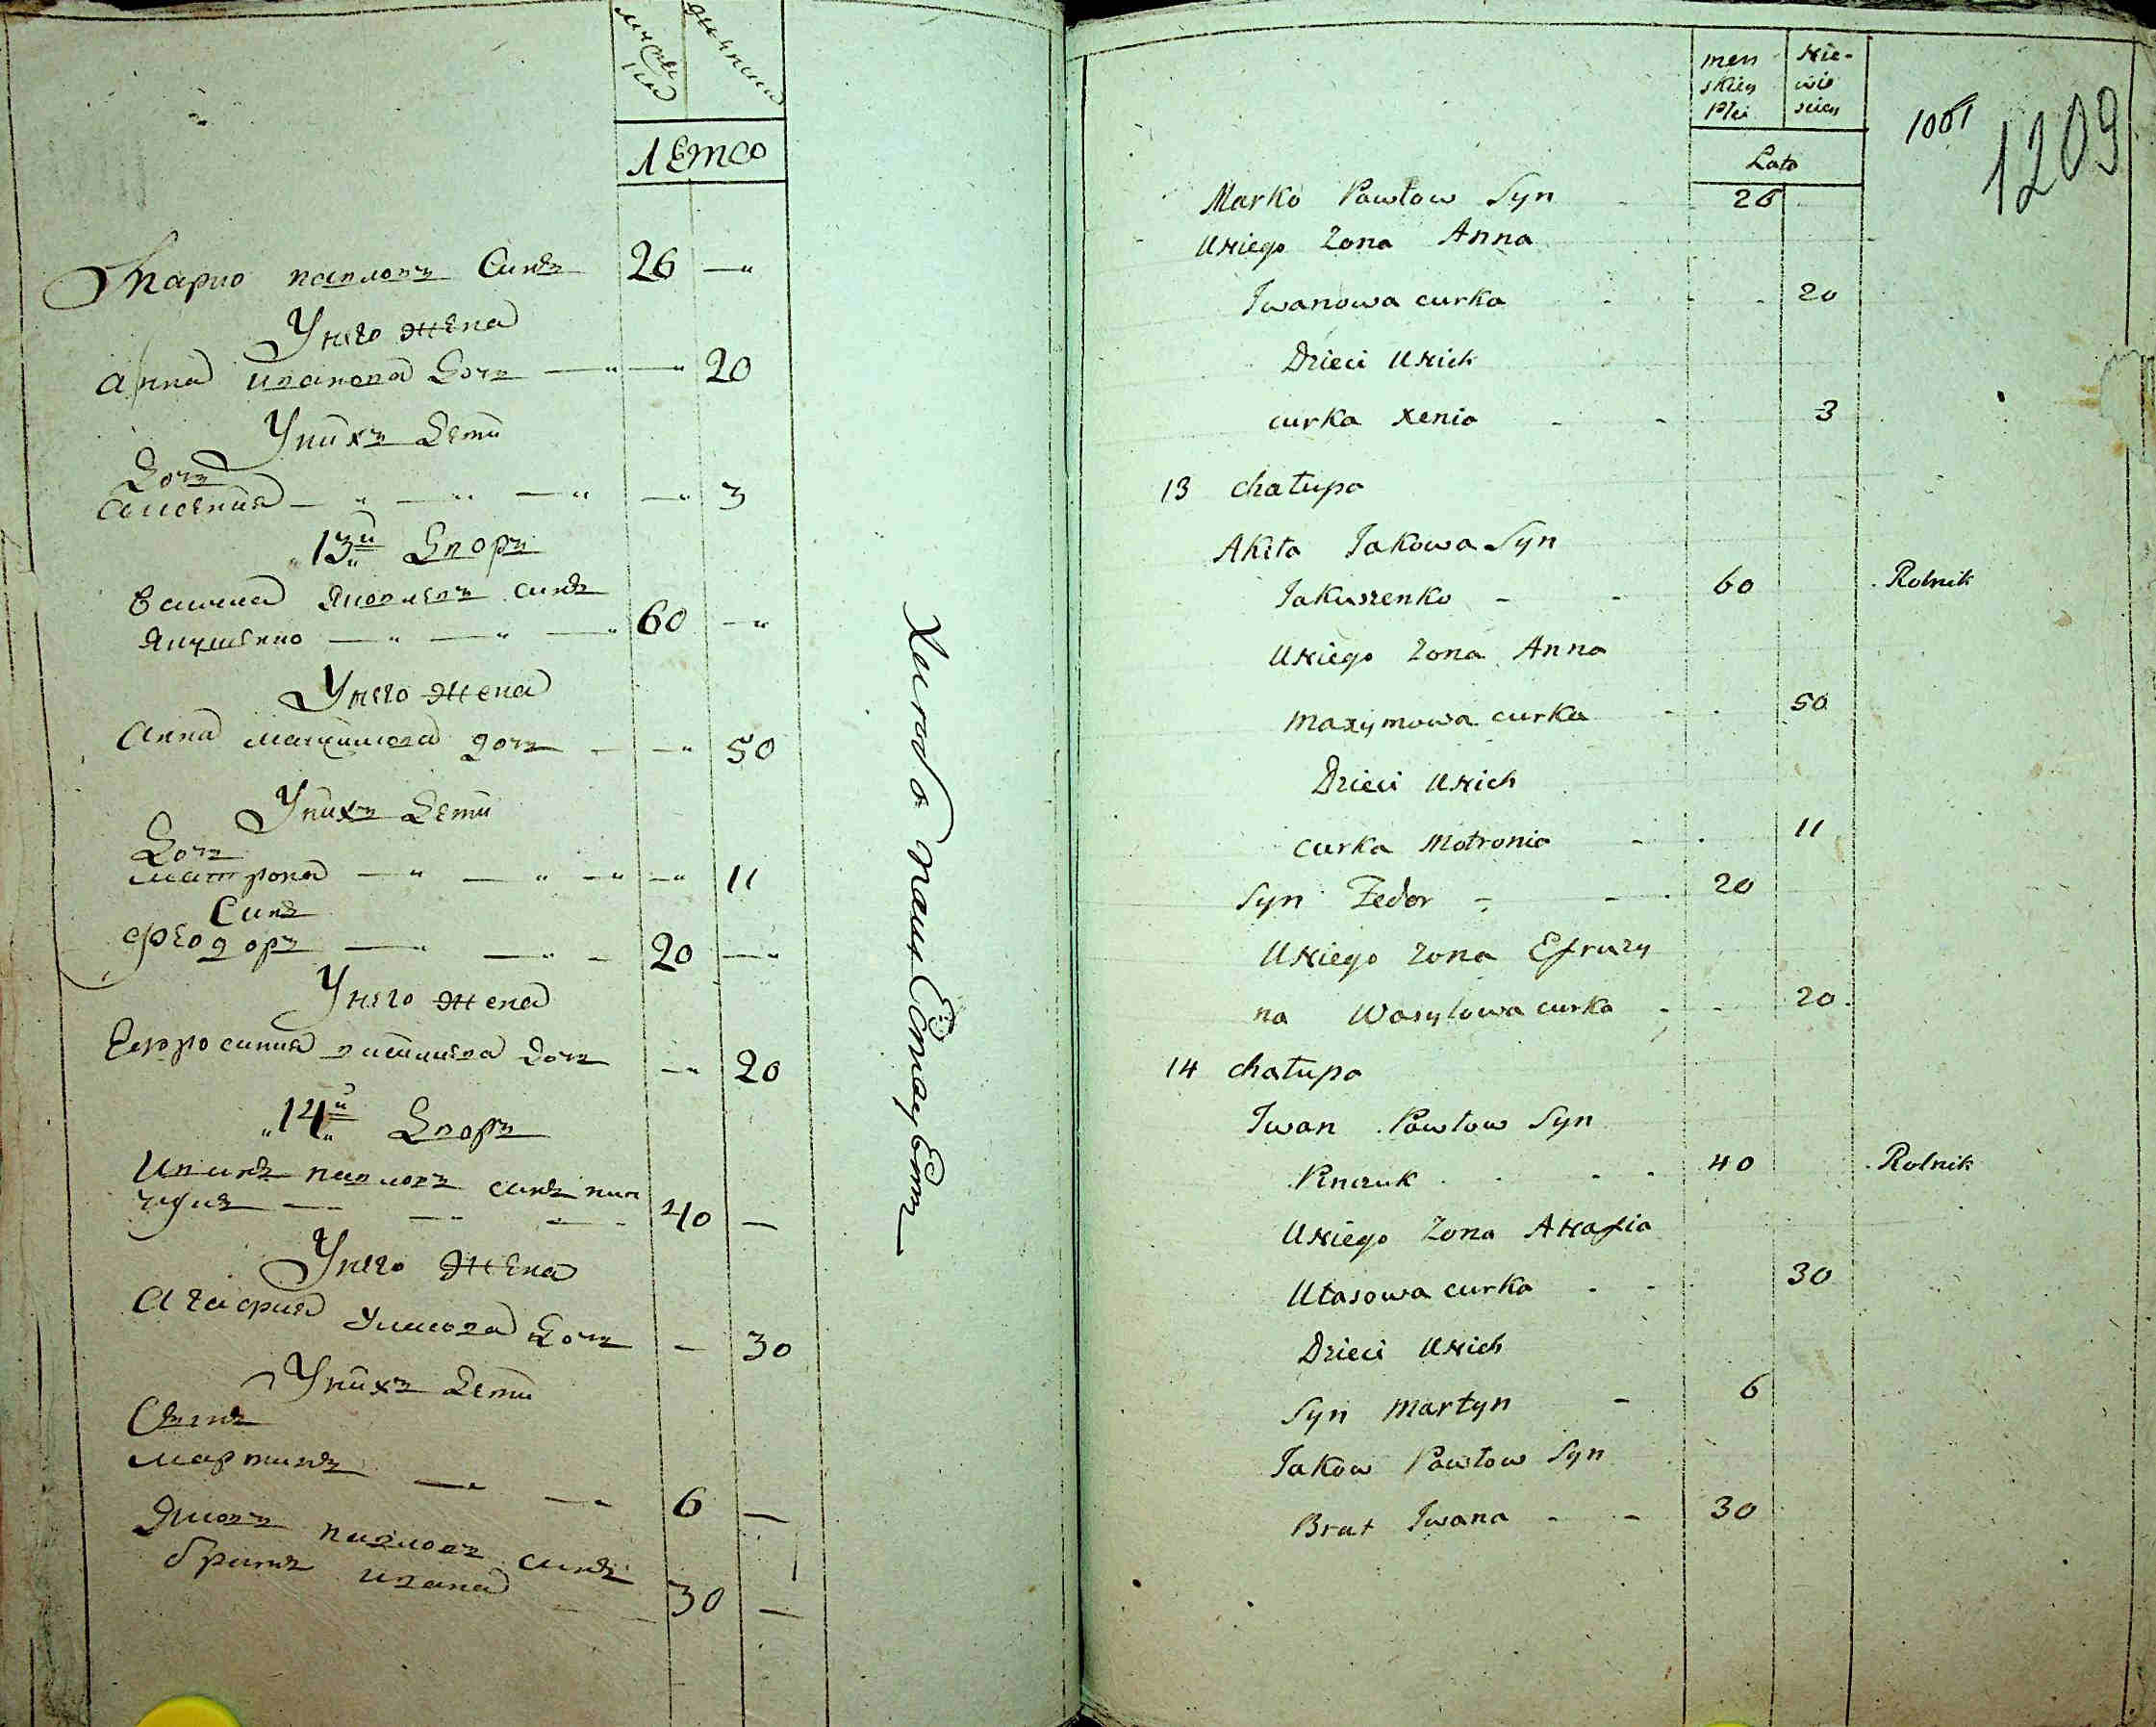 лѣто
Марко павловъ Синъ 26 —„
Унего жена
анна иванова Дочъ —„ —„ 20
Унихъ Дети
Дочъ
— „ — „ — „ — „ 3
„13„й Дворъ
Яковлевъ синъ
Якушенко — „ — „ — „ 60 —„
Унего жена
Анна Максимова дочъ — —„ 50
Унихъ Дети
Дочъ
матрона — „ — „ —„ —„ 11
Синъ
Феодоръ — „ — „ — 20 —„
Унего жена
Ефросиния василиева Дочъ —„ 20
„14„й Дворъ
Иванъ павловъ синъ пин
чукъ — — — 40 —
Унего жена
Агафия уласова Дочъ — 30
Унихъ Дети
Сынъ
мартинъ — — 6 —
Яковъ павловъ синъ
братъ ивана 30 —
men Nie-
skiey wie
Płci sciey
Lato
1001
1209
Marko Pawłow Syn 26
Uniego Zona Anna
Iwanowa curka 20
Dzieci Unich
curka Xenia 3
13 chałupa
Akita Jakowa Syn
Jakuszenko 60 Rolnik
Uniego Zona Anna
Maxymowa curka 50
Dzieci Unich
curka Motronia 11
Syn Fedor 20
Uniego Zona Efruzy
na Wasylowa curka 20
14 chałupa
Iwan Pawłow Syn
Pinczuk 40 Rolnik
Uniego Zona Ahafia
Ułasowa curka 30
Dzieci Unich
Syn Martyn 6
Jakow Pawłow Syn
Brat Iwana 30